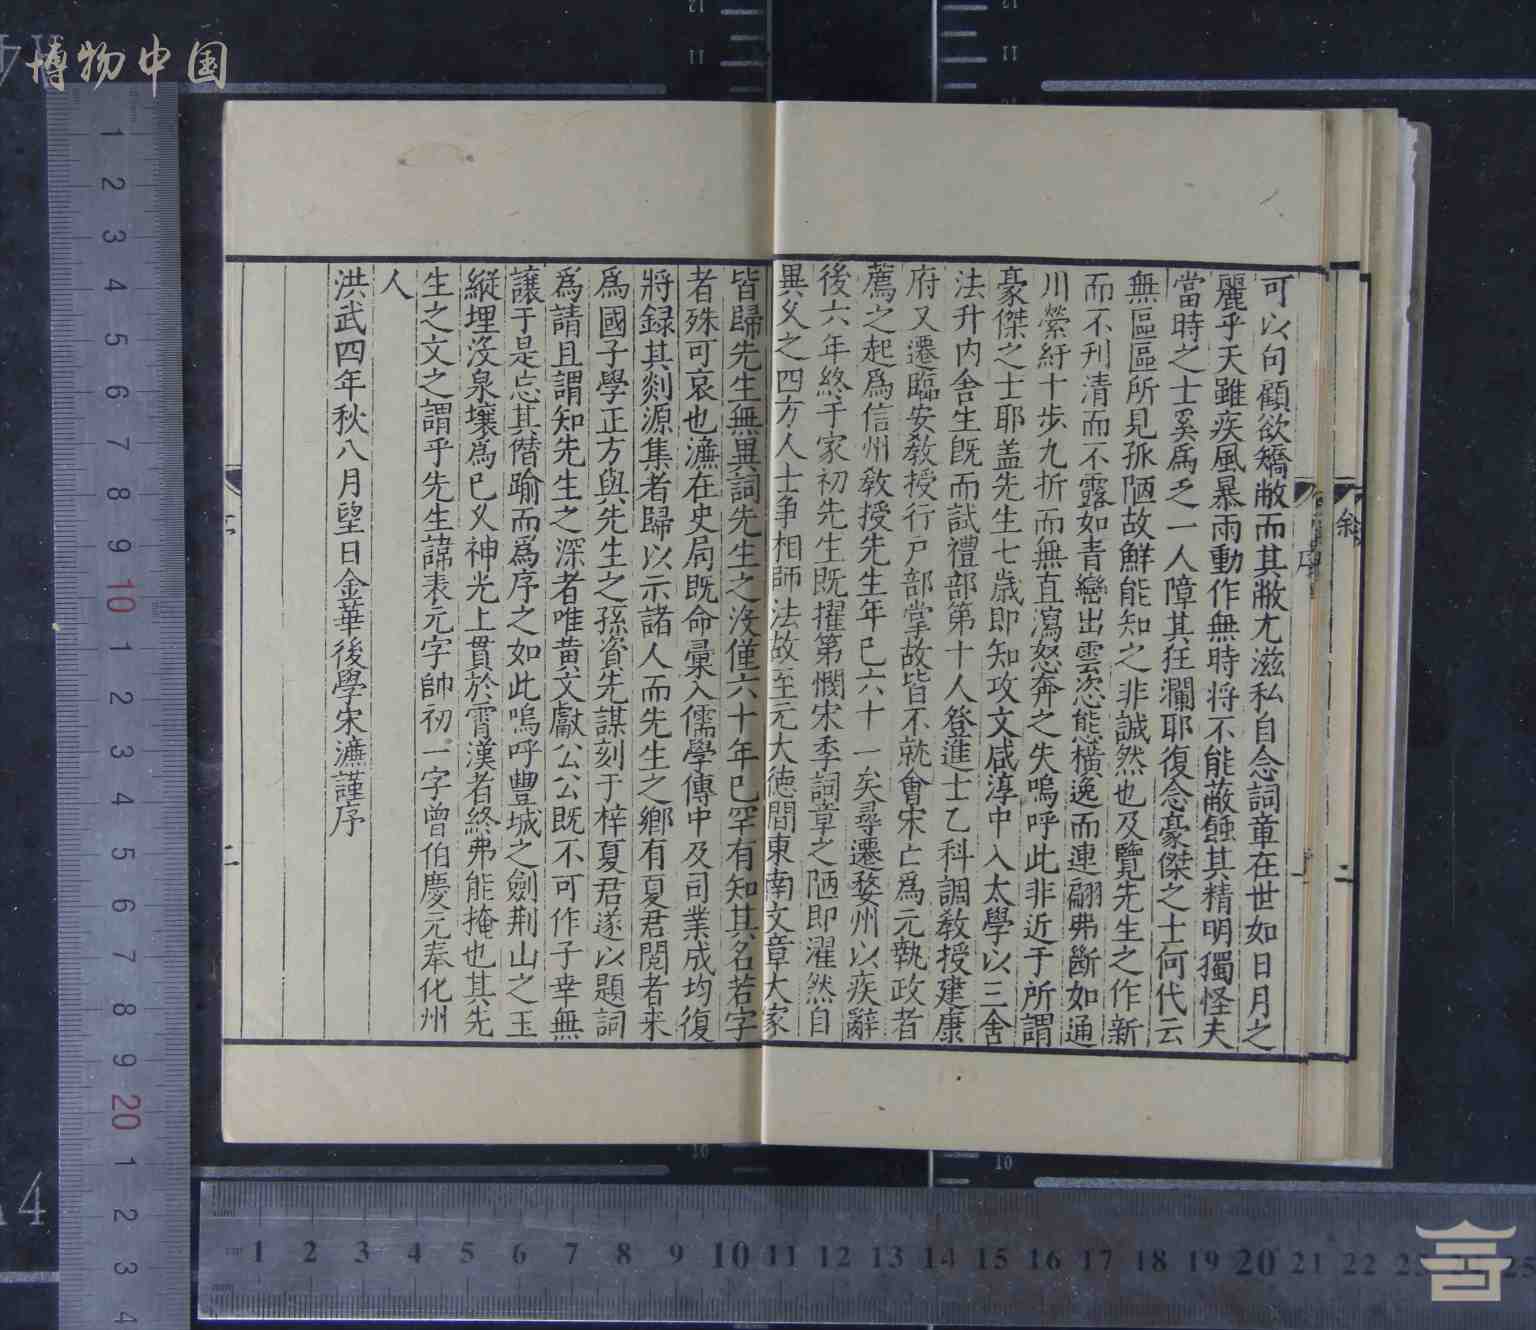 博物中国
可以句顧欲矯敝而其敝尤滋私自念詞章在世如日月之
麗乎天雖疾風暴雨動作無時将不能蔽蝕其精明獨怪夫
當時之士奚爲乏一人障其狂瀾耶復念豪傑之士何代云
無區區所見孤陋故鮮能知之非誠然也及覽先生之作新
而不刋清而不露如青巒出雲恣態橫逸而連翩弗斷如通
川縈紆十步九折而無直瀉怒奔之失嗚呼此非近于所謂
豪傑之士耶盖先生七歲即知攻文咸淳中入太學以三舍
法升内舍生既而試禮部第十人登進士乙科調教授建康
府又遷臨安教授行户部掌故皆不就會宋亡爲元執政者
薦之起爲信州教授先生年已六十一矣尋遷婺州以疾辭
後六年終于家初先生既擢第憫宋季詞章之陋即濯然自
異乆之四方人士争相師法故至元大徳間東南文章大家
皆歸先生無異詞先生之没僅六十年已罕有知其名若字
者殊可哀也濂在史局既命彙入儒學傳中及司業成均復
將録其剡源集者歸以示諸人而先生之鄉有夏君閱者来
爲國子學正方與先生之孫資先謀刻于梓夏君遂以題詞
爲請且謂知先生之深者唯黄文獻公公既不可作子幸無
讓于是忘其僭踰而爲序之如此嗚呼豐城之劍荆山之玉
縱埋没泉壤爲已乆神光上貫於霄漢者終弗能掩也其先
生之文之謂乎先生諱表元字帥初一字曾伯慶元奉化州
人
洪武四年秋八月望日金華後學宋濂謹序